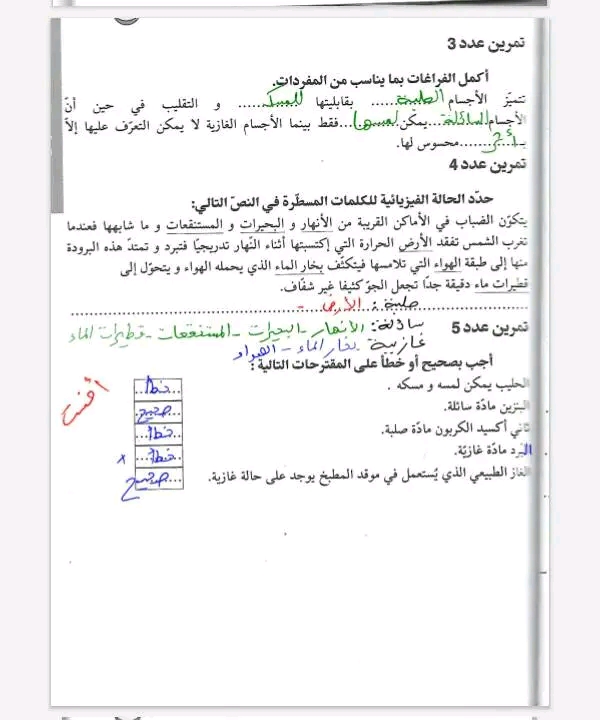 تمرين عدد 3
أكمل الفراغات بما يناسب من المفردات.
تتميّز الأجسام الصلبة...... بقابليتها للمسك...... و التقليب في حين أنّ
الأجسام السائلة...يمكن لمسها...فقط بينما الأجسام الغازية لا يمكن التعرّف عليها إلاّ
بـ.أثر.......محسوس لها.
تمرين عدد 4
حدّد الحالة الفيزيائية للكلمات المسطّرة في النصّ التالي:
يتكوّن الضباب في الأماكن القريبة من الأنهار و البحيرات و المستنقعات و ما شابهها فعندما
تغرب الشمس تفقد الأرض الحرارة التي إكتسبتها أثناء النّهار تدريجيّا فتبرد و تمتدّ هذه البرودة
منها إلى طبقة الهواء التي تلامسها فيتكثّف بخار الماء الذي يحمله الهواء و يتحوّل إلى
قطيرات ماء دقيقة جدّا تجعل الجوّ كثيفا غير شفّاف.
صلبة : الأرض -
تمرين عدد 5
سائلة: الأنهار - البحيرات - المستنقعات - قطيرات الماء
غازية بخار الماء - الهواء
أجب بصحيح أو خطأ على المقترحات التالية :
الحليب يمكن لمسه و مسكه . ..خطأ..
البنزين مادّة سائلة. ..صحيح..
ثاني أكسيد الكربون مادّة صلبة. ..خطأ..
البرد مادّة غازيّة. ..خطأ.. x
الغاز الطبيعي الذي يُستعمل في موقد المطبخ يوجد على حالة غازية. صحيح...